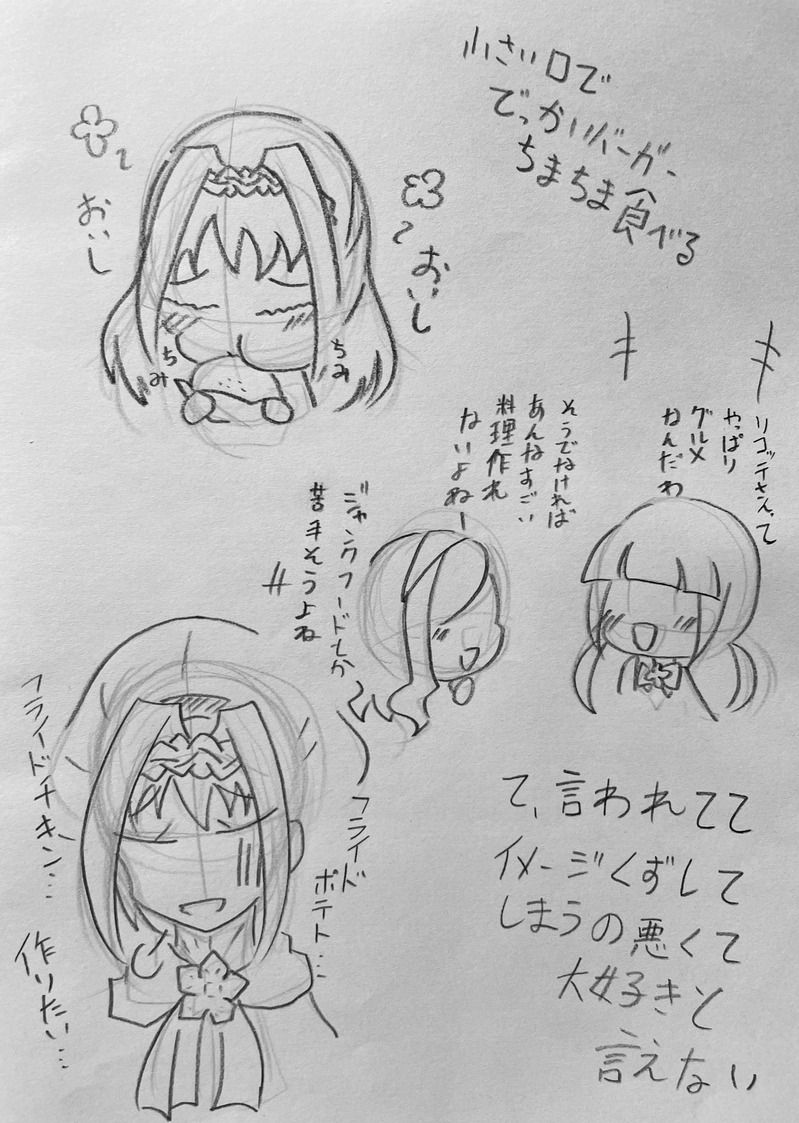 小さい口で
でっかいバーガー
ちまちま食べる
おいし
おいし
ちみ
ちみ
リコッテさんって
やっぱり
グルメ
なんだわ
そうでなければ
あんなすごい
料理作れ
ないよねー
ジャンクフードとか
苦手そうよね
フライドチキン…
フライド
ポテト…
作りたい…
て、言われてて
イメージくずして
しまうの悪くて
大好きと
言えない